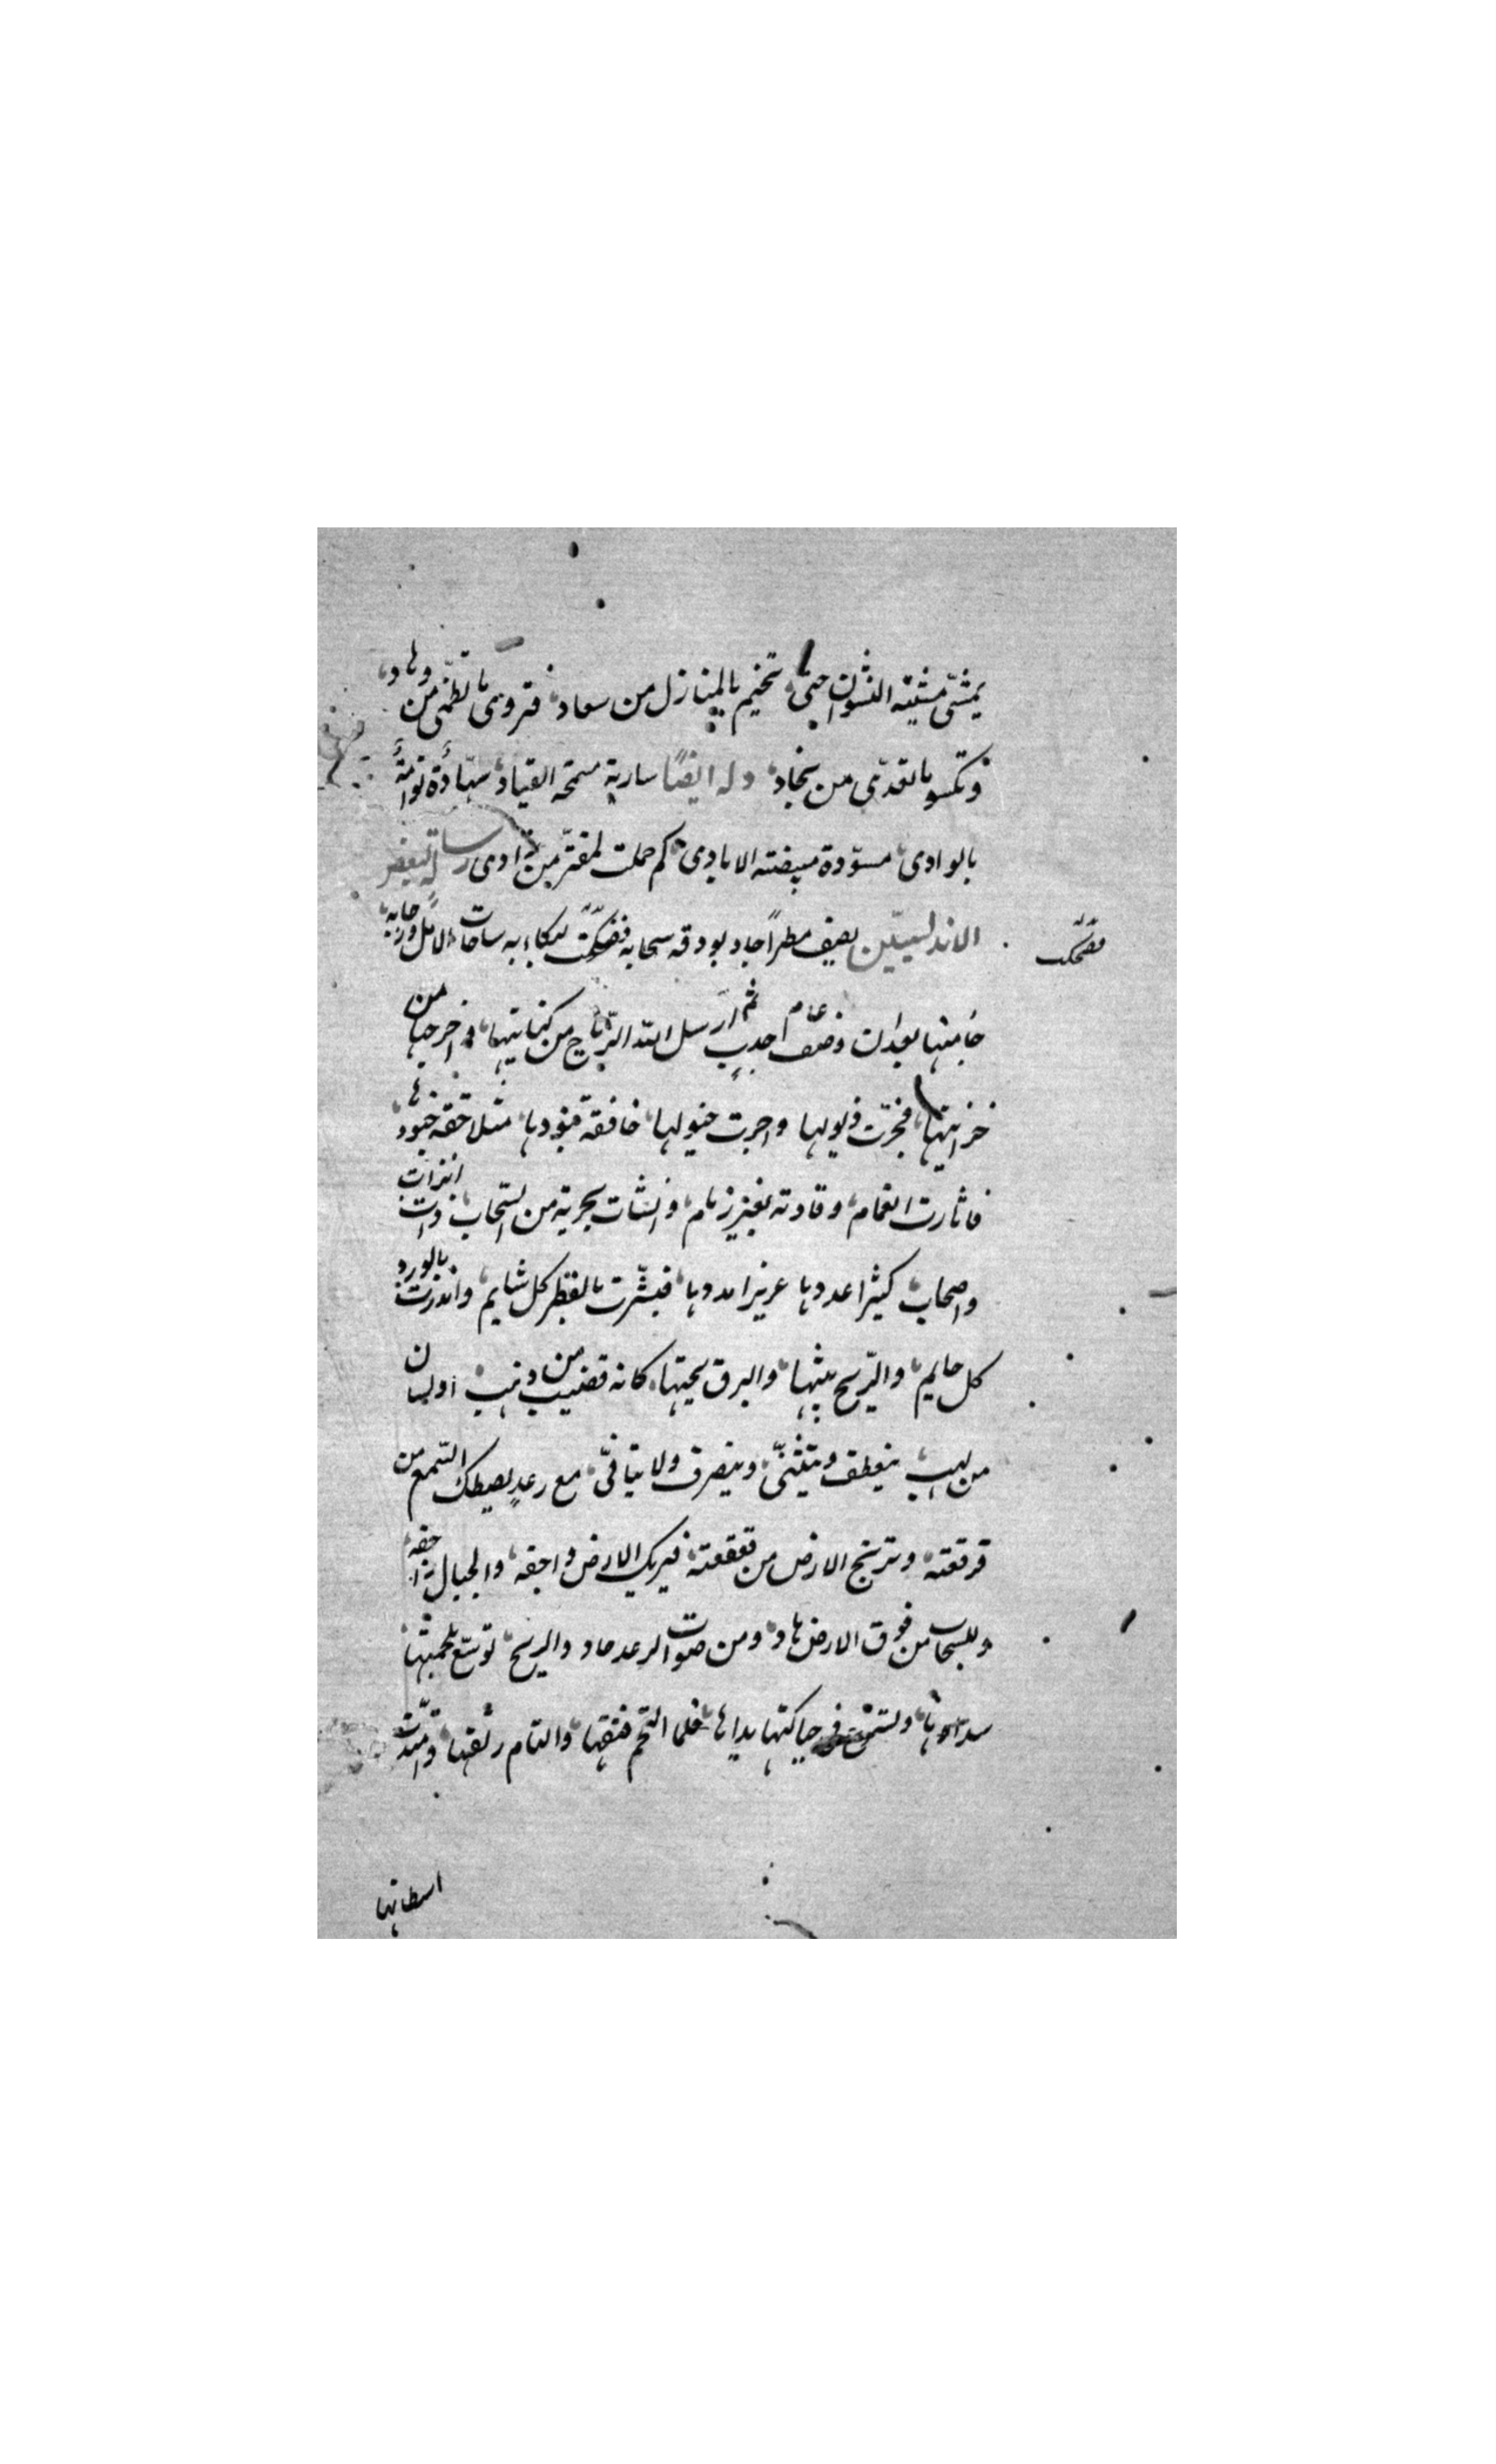 يمشى مشية النشوان حتى تخيم بالمنازل من سعاد فتروى بالظمى من وهاد
وتكسو بالقدى من نجاد وله ايضا سارية مسمحة القياد سهادة نوامة
بالوادى مسودة مبيضة الايادى كم حملت لمفتر من زاد رسالة لبعض
الاندلسيين يصف مطرا جاد بودقه سحابه فضحكت لبكاءه ساحات الامل ورحابه
فضحك
خامتها بعد ان وصف عام اجدب ثم ارسل الله الرياح من كنايتها واخرجها من
خزاينها فجرت ذيولها واجرت خيولها خافقة بنودها متلاحقة جنودها
فاثارت الغمام وقادته بغير زمام وانشات بحرية من السحاب ذات اتراب
واصحاب كثيرا عددها عزيرا مددها فبشرت بالقطر كل شايم وانذرت بالورد
كل حايم والريح تنثها والبرق يحثها كانه قضيب من ذهب او لسان
من لهب ينعطف ويتثنى وينصرف ولا يتافى مع رعد يصطك السمع من
قرقعته وترتج الارض من قعقعته فيريك الارض واجفة والجبال راجفة
وللسحاب من فوق الارض هاد ومن صوت الرعد حاد والريح توسع بلحمتها
سداوها وتستمتع حياكتها يداها فلما التحم فتقها والتام رتقها وامتدت
اسطانها